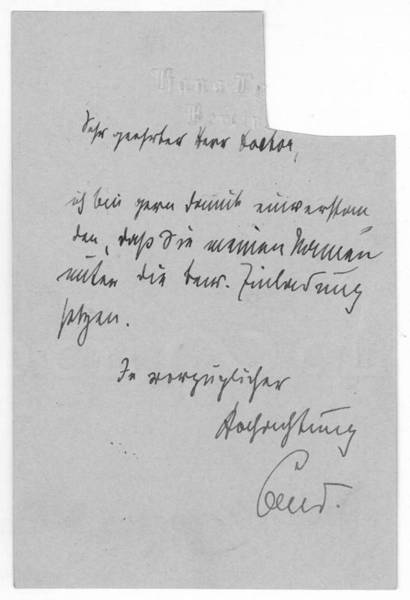 Sehr geehrter Herr Doctor,
ich bin gern damit einverstan
den, daß Sie meinen Namen
unter die bew. Einladung
setzen.
In vorzüglicher
Hochachtung